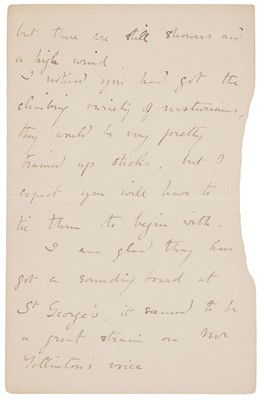 but there are still showers and
a high wind
I noticed you had got the
climbing variety of nasturtiums,
they would be very pretty
trained up sticks, but I
expect you will have to
tie them to begin with.
I am glad they have
got a sounding board at
St George's, it seemed to be
a great strain on Mr
Tollinton's voice